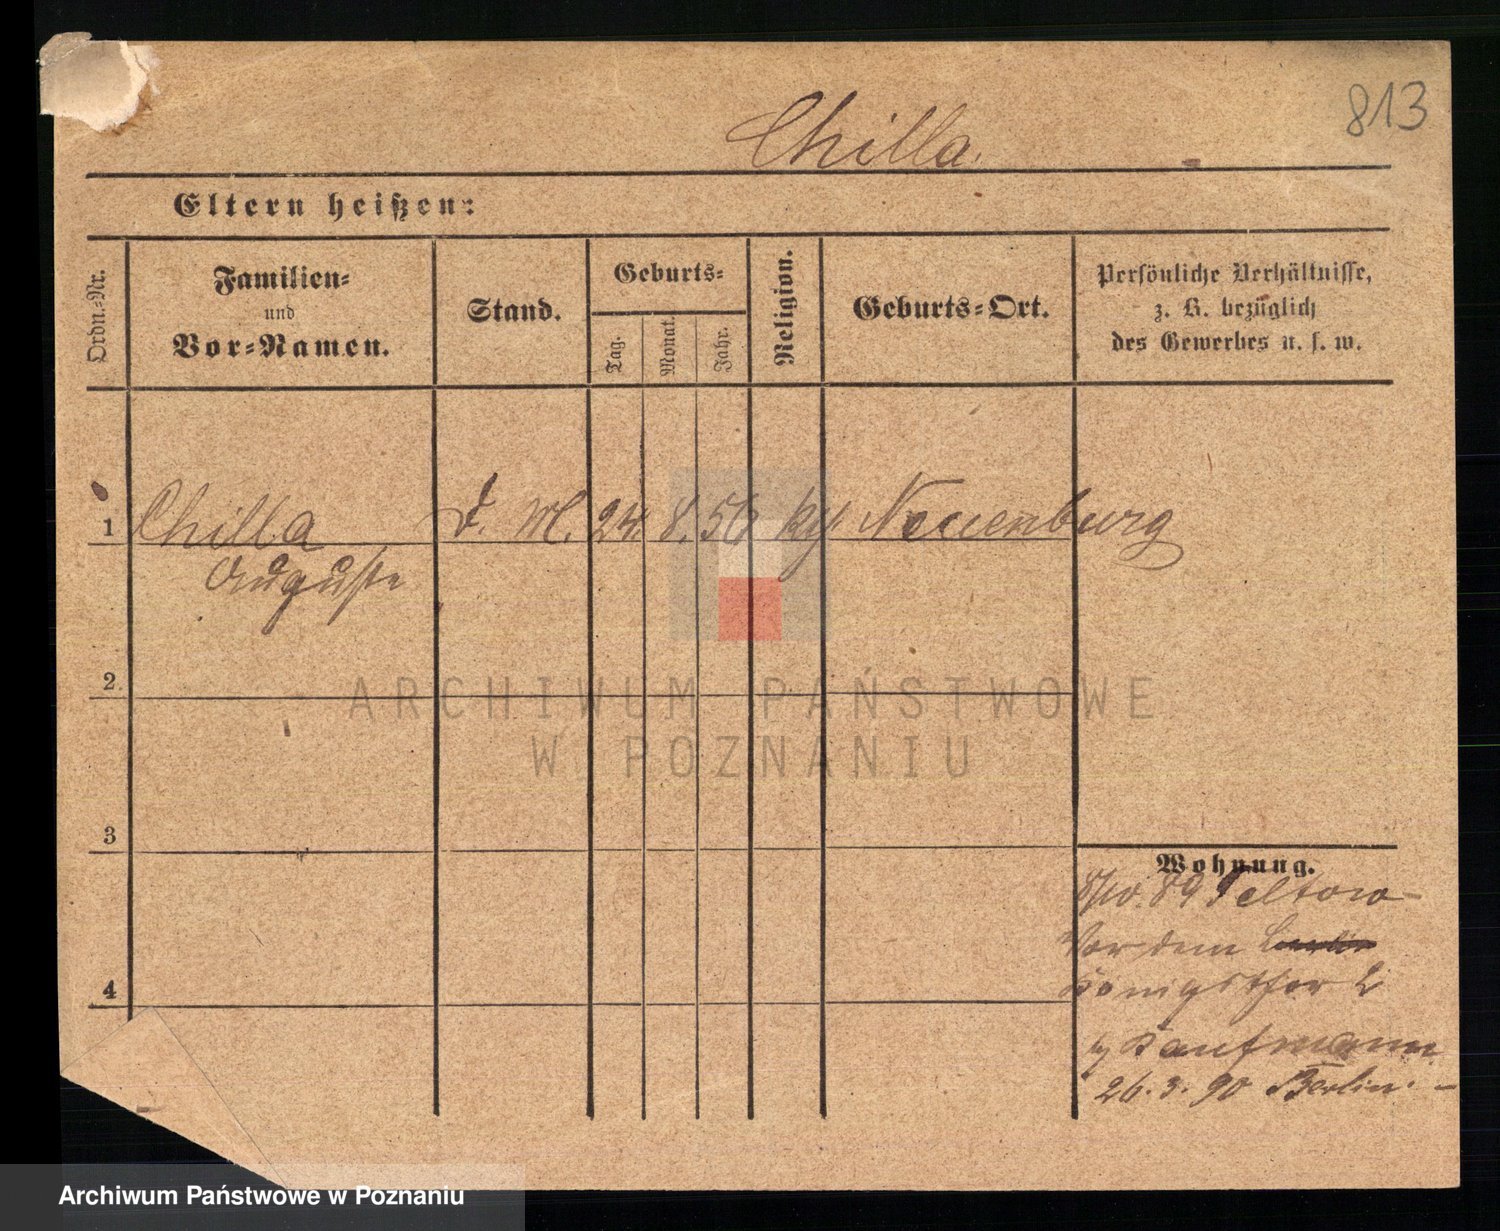 813
Chilla.
Eltern heißen:
Ordn.=Nr.
Familien=
und
Vor=Namen.
Stand.
Geburts=
Tag.
Monat.
Jahr.
Religion.
Geburts=Ort.
Persönliche Verhältnisse,
z. B. bezüglich
des Gewerbes u. s. w.
1 Chilla D. M. 24. 8. 56 Neuenburg
Auguste
ARCHIWUM PAŃSTWOWE
W POZNANIU
2
3
4
Wohnung.
8/10. 89 Teltow
Vor dem
Königsthor 2
Kaufmann
26. 3. 90 Berlin. –
Archiwum Państwowe w Poznaniu